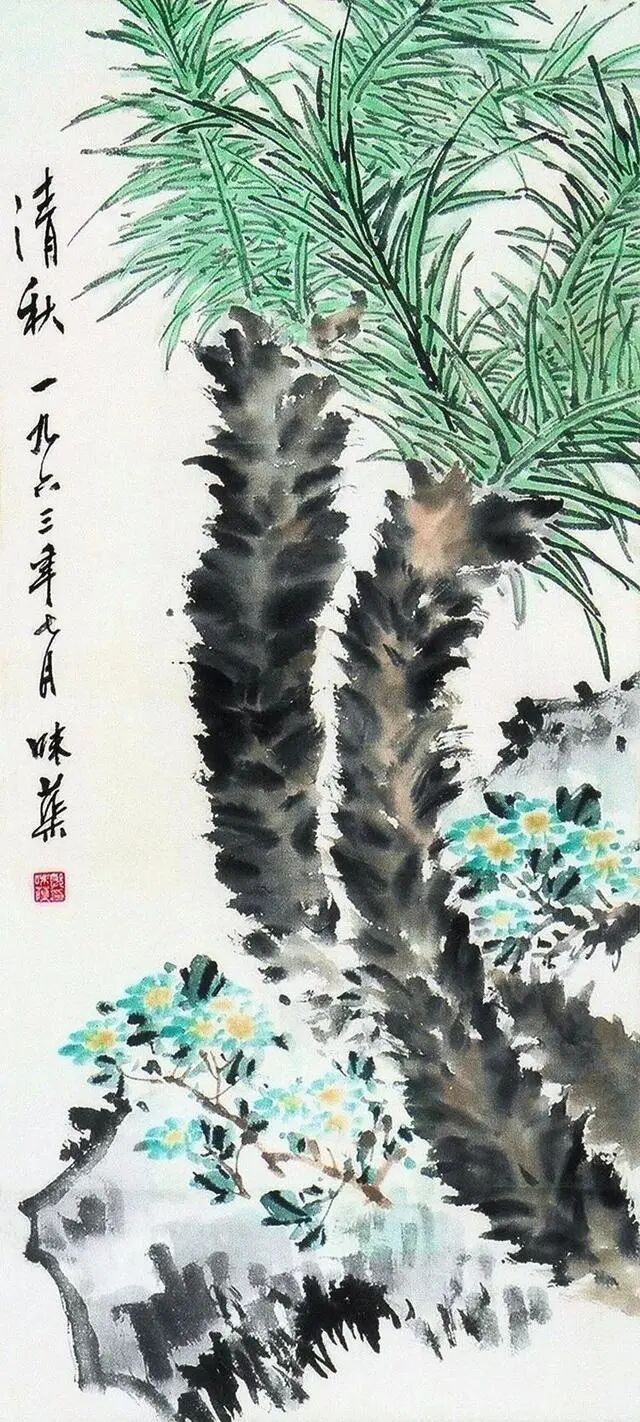 清秋 一九六三年七月 味蕖